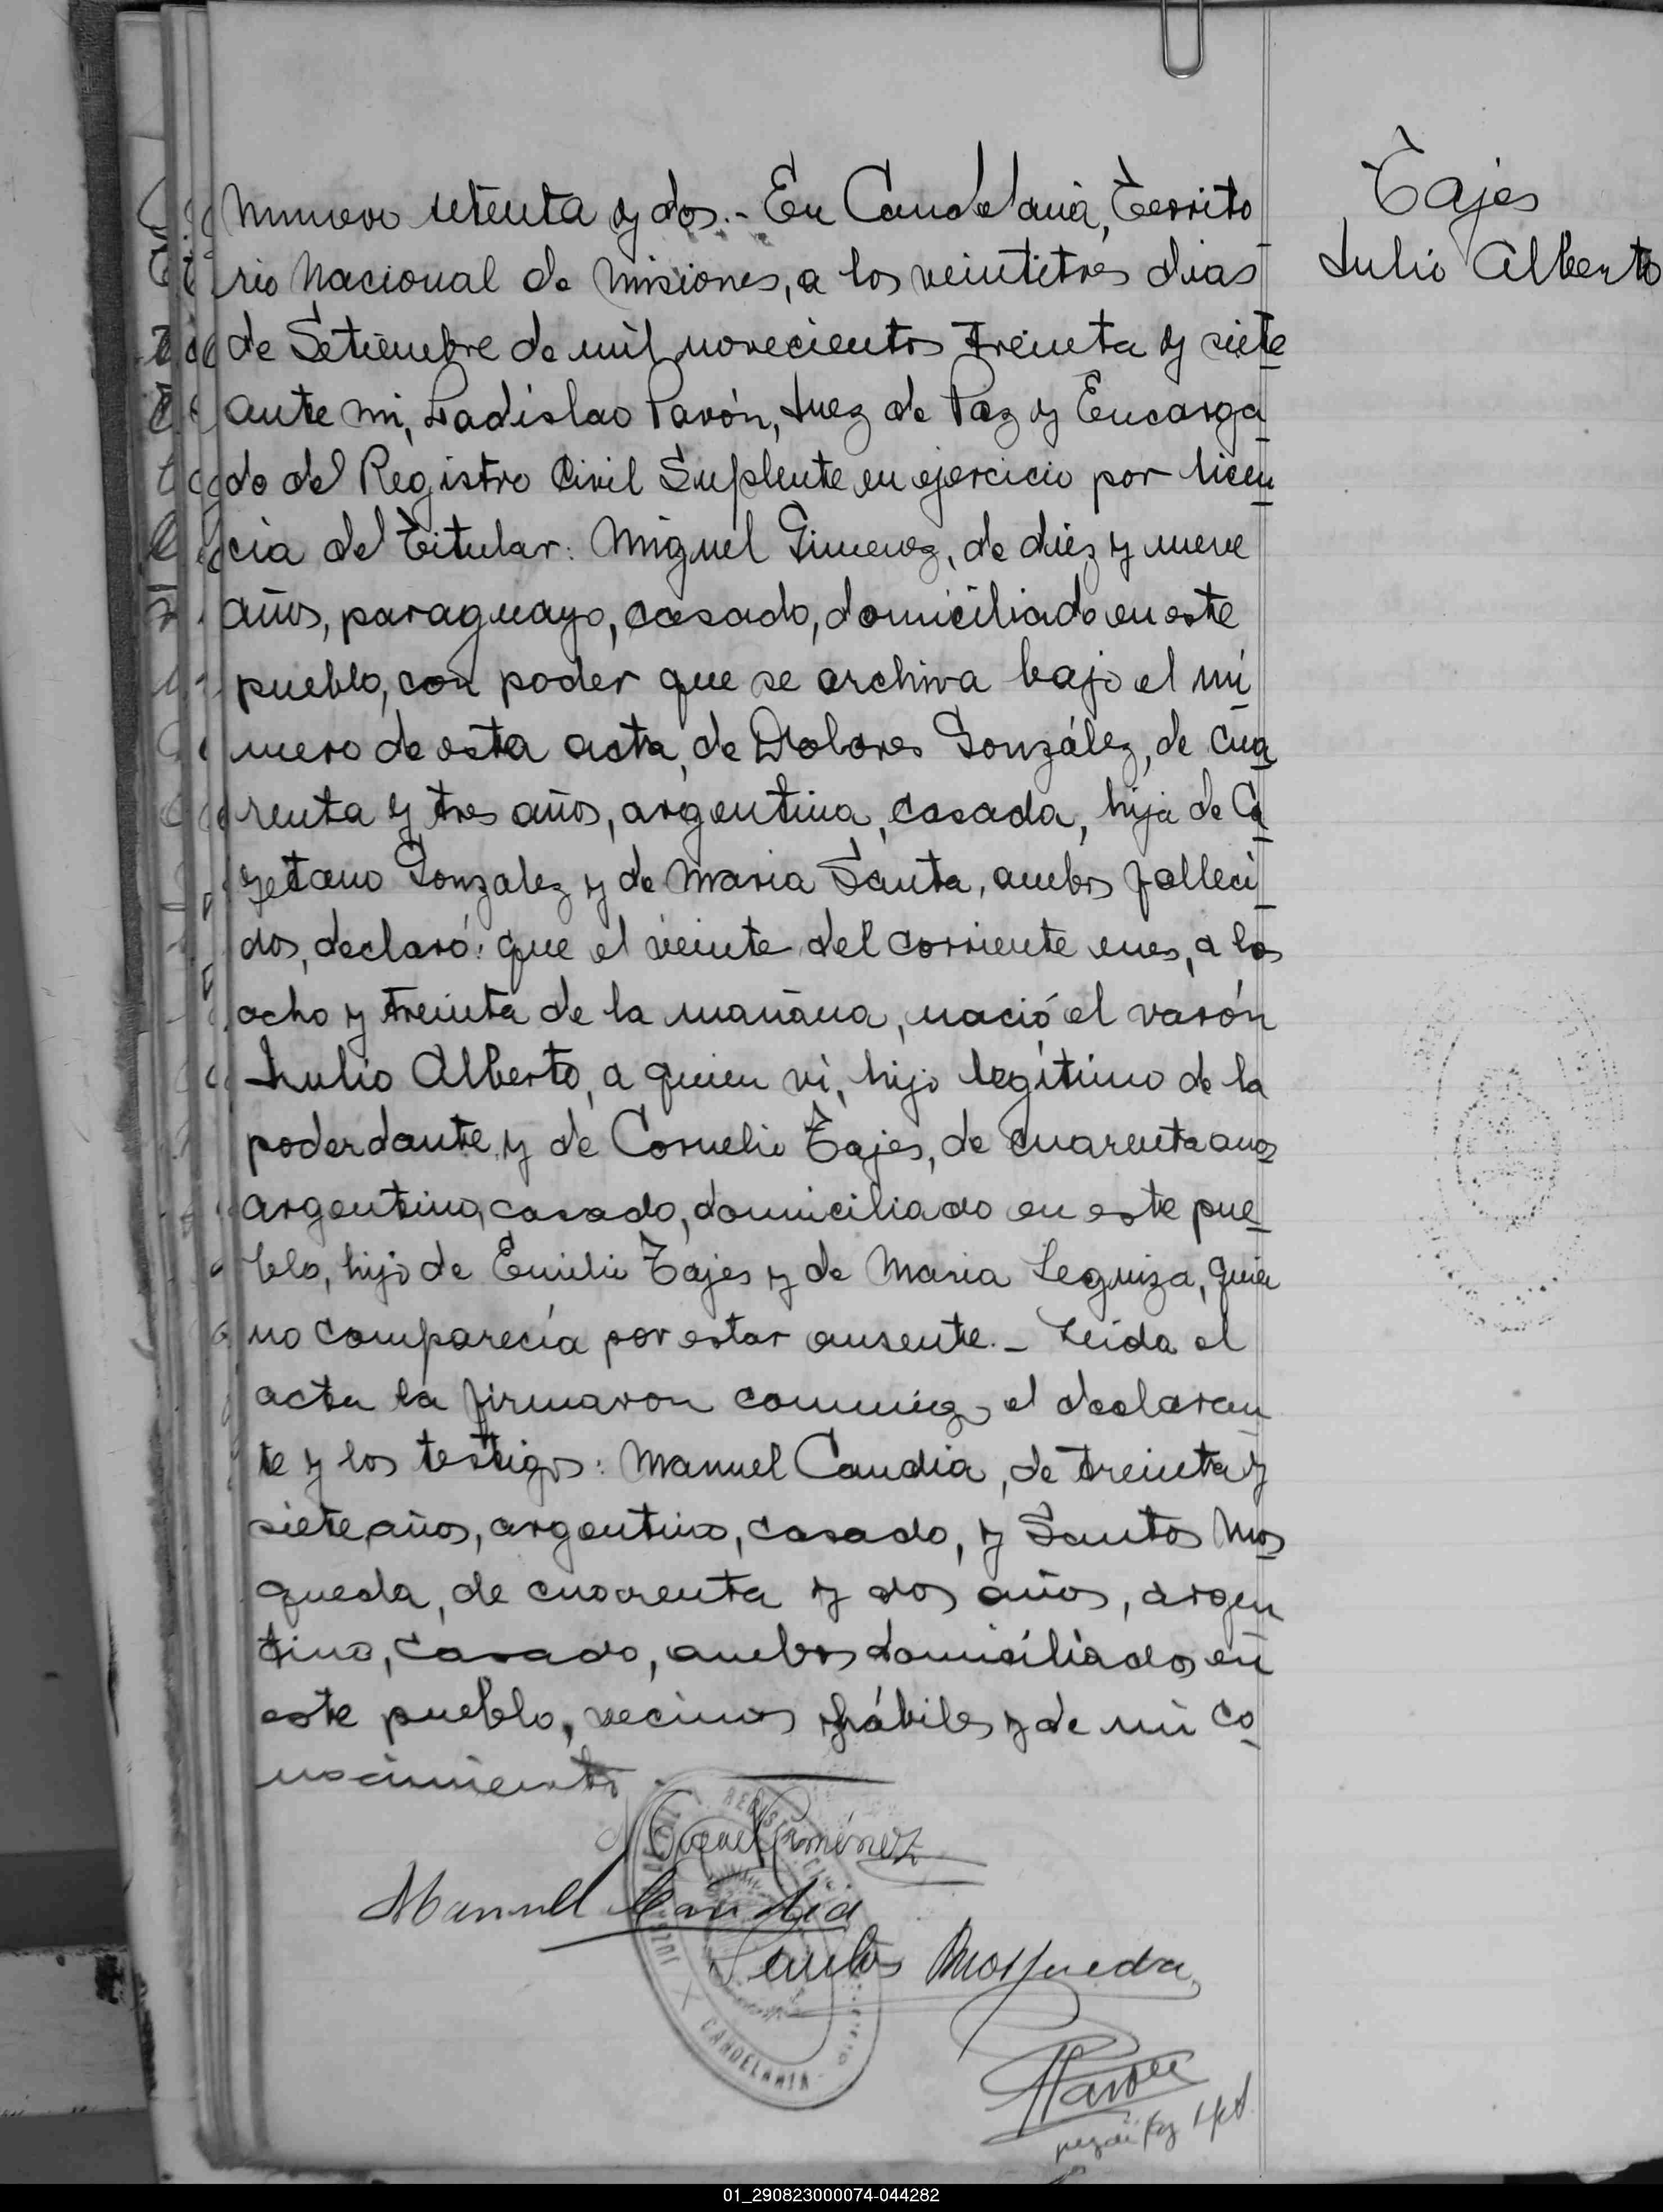 Tajes
Julio Alberto
Número setenta y dos.- En Candelaria, Territo
rio Nacional de Misiones, a los veintitres dias
de Setiembre de mil novecientos treinta y siete
ante mi, Ladislao Pavón, Juez de Paz y Encarga
do del Registro Civil Suplente en ejercicio por licen
cia del Titular: Miguel Gimenez, de diez y nueve
años, paraguayo, casado, domiciliado en este
pueblo, con poder que se archiva bajo el nú
mero de esta acta, de Dolores González, de cua
renta y tres años, argentina, casada, hija de Ca
yetano Gonzalez y de Maria Santa, ambos falleci
dos, declaró: que el veinte del corriente mes, a las
ocho y treinta de la mañana, nació el varón
Julio Alberto, a quien ví, hijo legítimo de la
poderdante y de Cornelio Tajes, de cuarenta años
argentino, casado, domiciliado en este pue
blo, hijo de Emilio Tajes y de Maria Leguiza, quien
no comparecía por estar ausente.- Leida el
acta la firmaron conmigo el declaran
te y los testigos: Manuel Candia, de treinta y
siete años, argentino, casado, y Santos Mos
queda, de cuarenta y dos años, argen
tino, casado, ambos domiciliados en
este pueblo, vecinos hábiles y de mi co
nocimiento.
Miguel Gimenez
Manuel Candia
Santos Mosqueda
REGISTRO CIVIL
CANDELARIA
Pavón
01_290823000074-044282